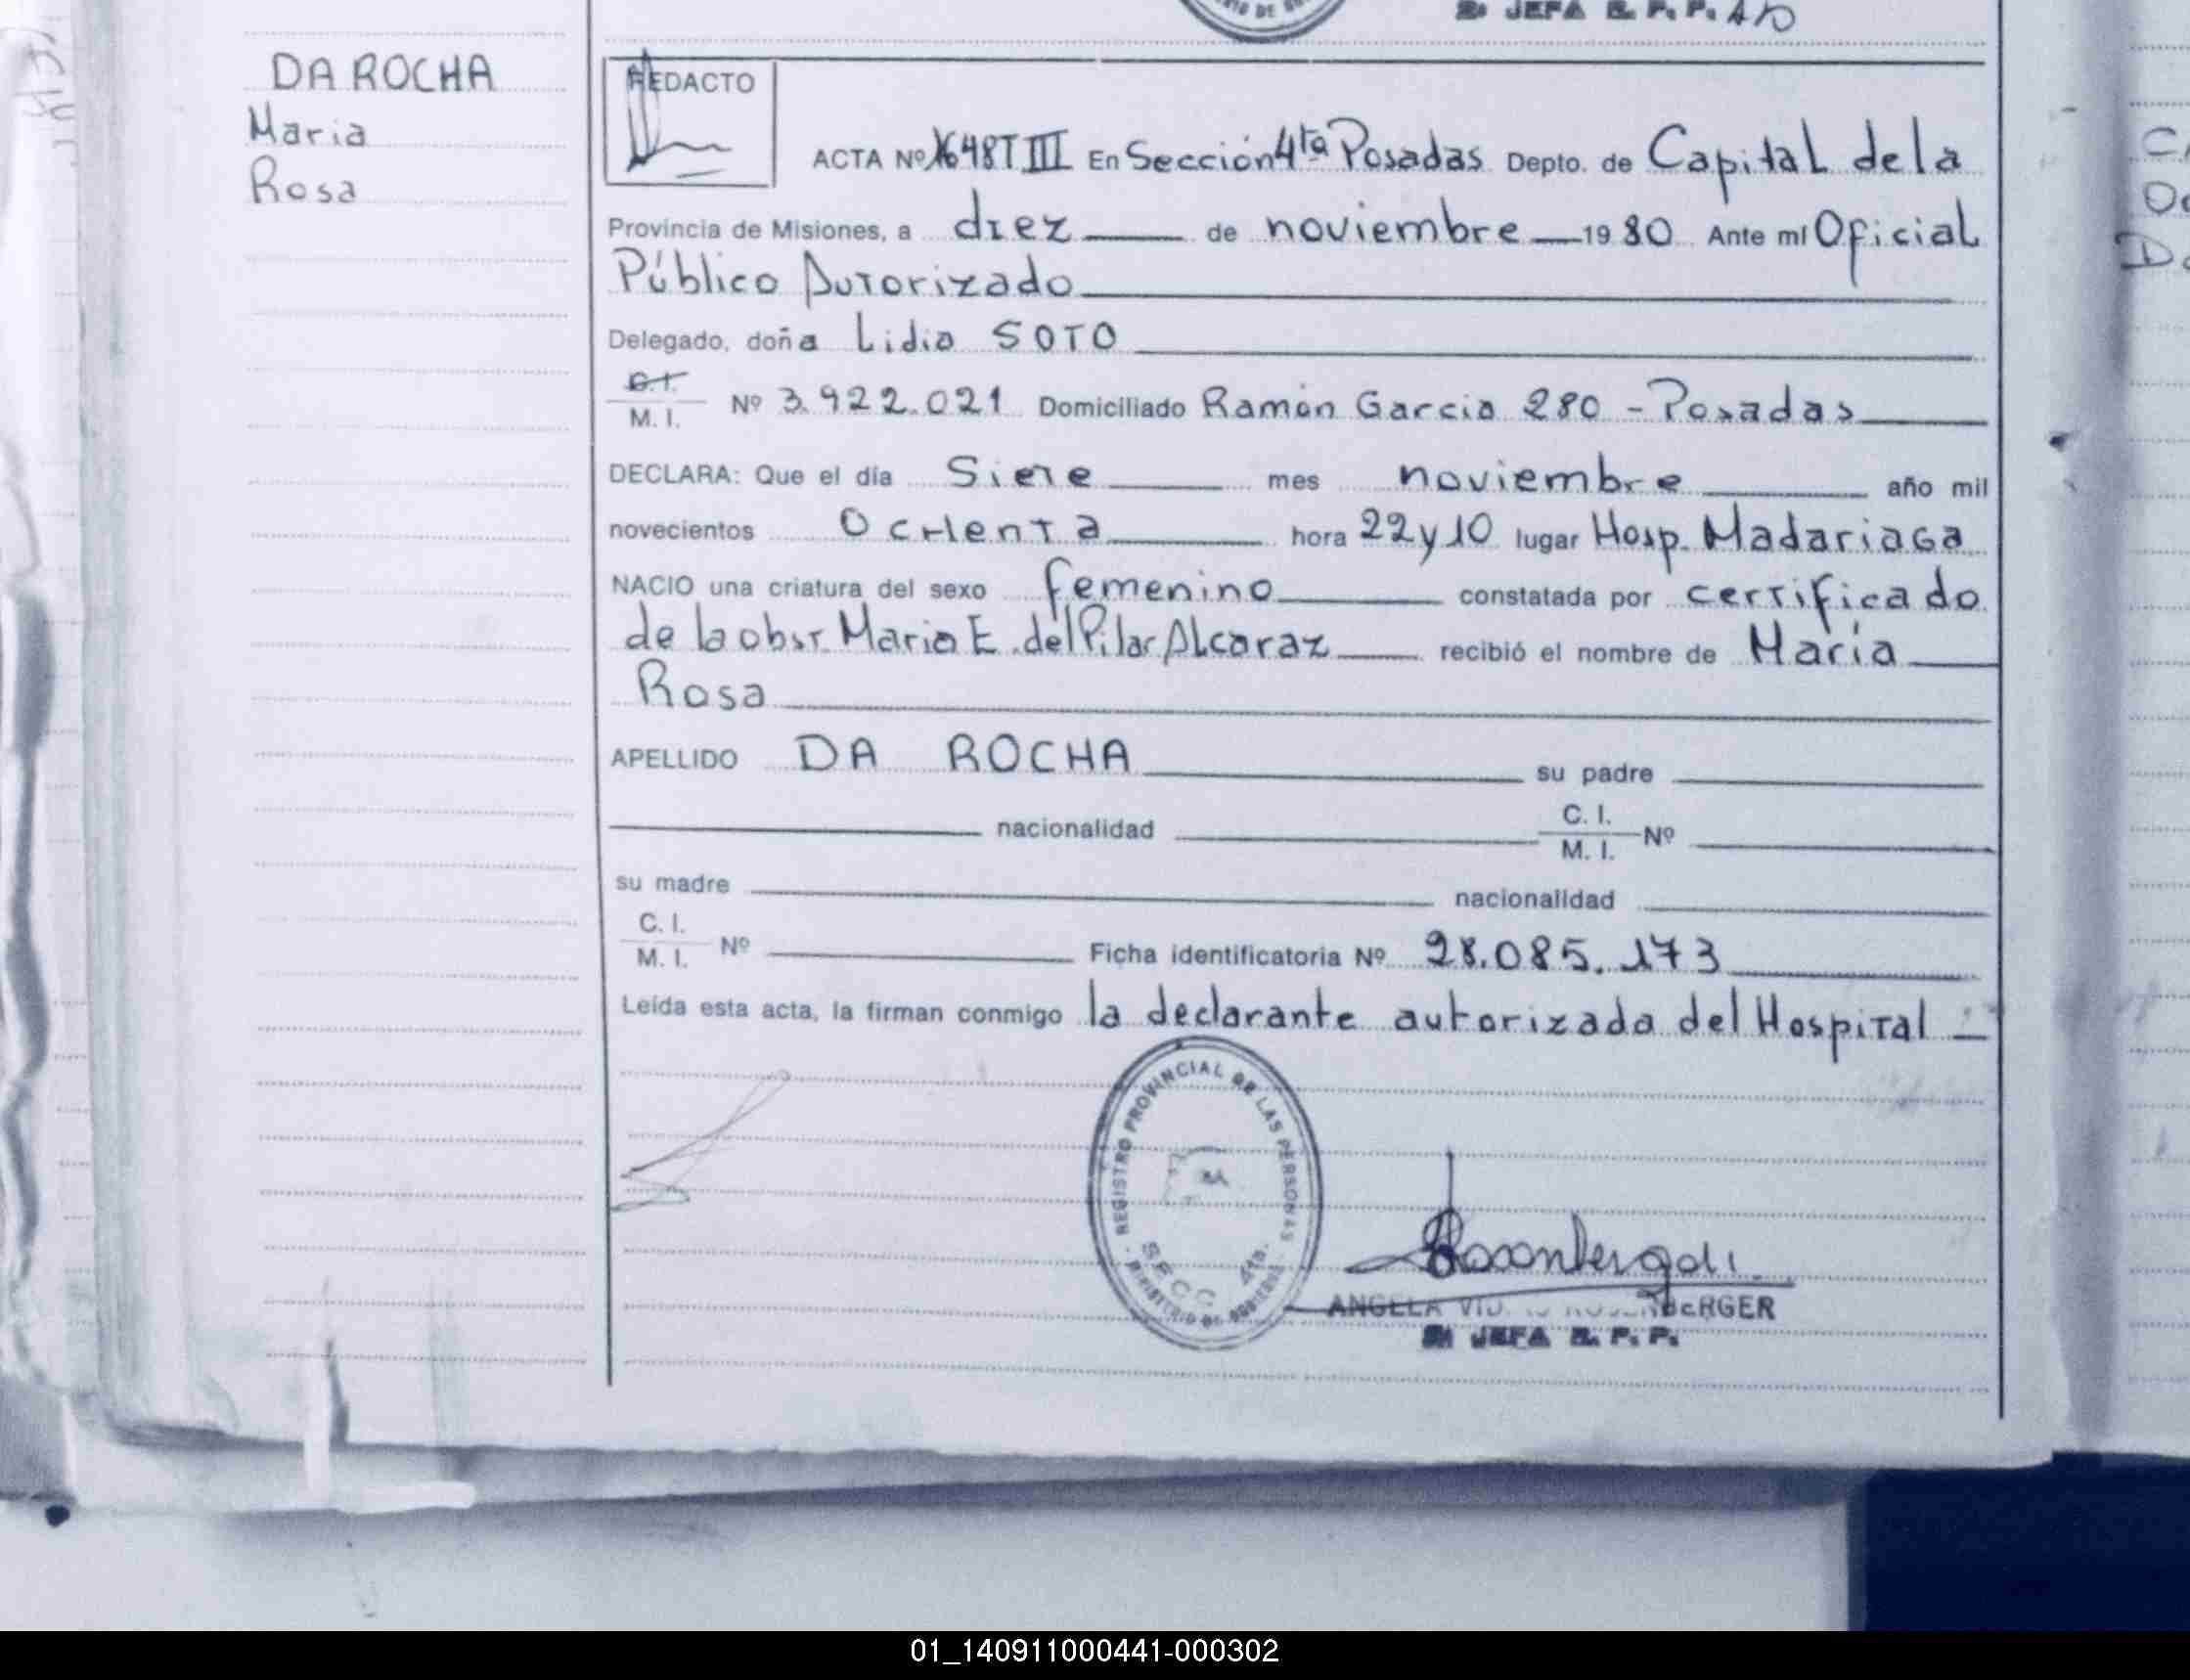 2º JEFA R. P. P.
DA ROCHA
Maria
Rosa
REDACTO
ACTA Nº 1648 T III En Sección 4ta Posadas Depto. de Capital de la
Provincia de Misiones, a diez de noviembre 1980 Ante mí Oficial
Público Autorizado
Delegado, doña Lidia SOTO
C.I.
M. I. Nº 3.922.021 Domiciliado Ramón Garcia 280 - Posadas
DECLARA: Que el día Siete mes noviembre año mil
novecientos OCHenTa hora 22 y 10 lugar Hosp. Madariaga
NACIO una criatura del sexo femenino constatada por certificado
de la obst. Maria E. del Pilar Alcaraz recibió el nombre de María
Rosa
APELLIDO DA ROCHA su padre
nacionalidad C. I. M. I. Nº
su madre nacionalidad
C. I. M. I. Nº Ficha identificatoria Nº 28.085.173
Leída esta acta, la firman conmigo la declarante autorizada del Hospital -
REGISTRO PROVINCIAL DE LAS PERSONAS
SECC 4ta.
MINISTERIO DE GOBIERNO
ANGELA
JEFA R. P. P.
01_140911000441-000302